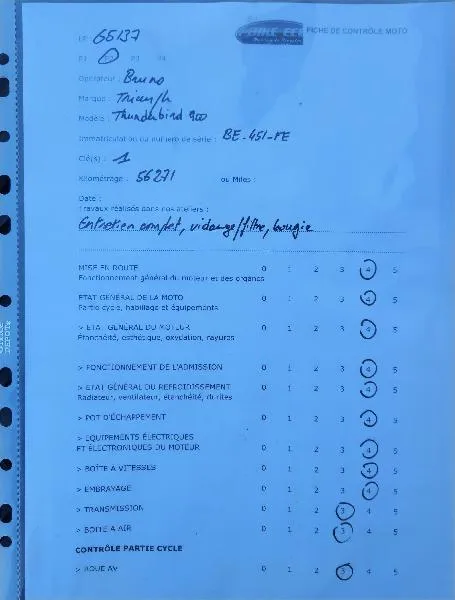 FICHE DE CONTRÔLE MOTO
65137
P1 P2 P3 P4
Opérateur : Bruno
Marque : Triumph
Modèle : Thunderbird 900
Immatriculation ou numéro de série : BE-451-FE
Clé(s) : 1
Kilométrage : 56271 ou Miles :
Date :
Travaux réalisés dans nos ateliers :
Entretien complet, vidange/filtre, bougie
MISE EN ROUTE 0 1 2 3 4 5
Fonctionnement général du moteur et des organes
ETAT GENERAL DE LA MOTO 0 1 2 3 4 5
Partie cycle, habillage et équipements
> ETAT GENERAL DU MOTEUR 0 1 2 3 4 5
Étanchéité, esthétique, oxydation, rayures
> FONCTIONNEMENT DE L'ADMISSION 0 1 2 3 4 5
> ETAT GÉNÉRAL DU REFROIDISSEMENT 0 1 2 3 4 5
Radiateur, ventilateur, étanchéité, durites
> POT D'ÉCHAPPEMENT 0 1 2 3 4 5
> EQUIPEMENTS ÉLECTRIQUES
ET ÉLECTRONIQUES DU MOTEUR 0 1 2 3 4 5
> BOÎTE A VITESSES 0 1 2 3 4 5
> EMBRAYAGE 0 1 2 3 4 5
> TRANSMISSION 0 1 2 3 4 5
> BOITE A AIR 0 1 2 3 4 5
CONTRÔLE PARTIE CYCLE
> ROUE AV 0 1 2 3 4 5
OFFICE
DEPOT